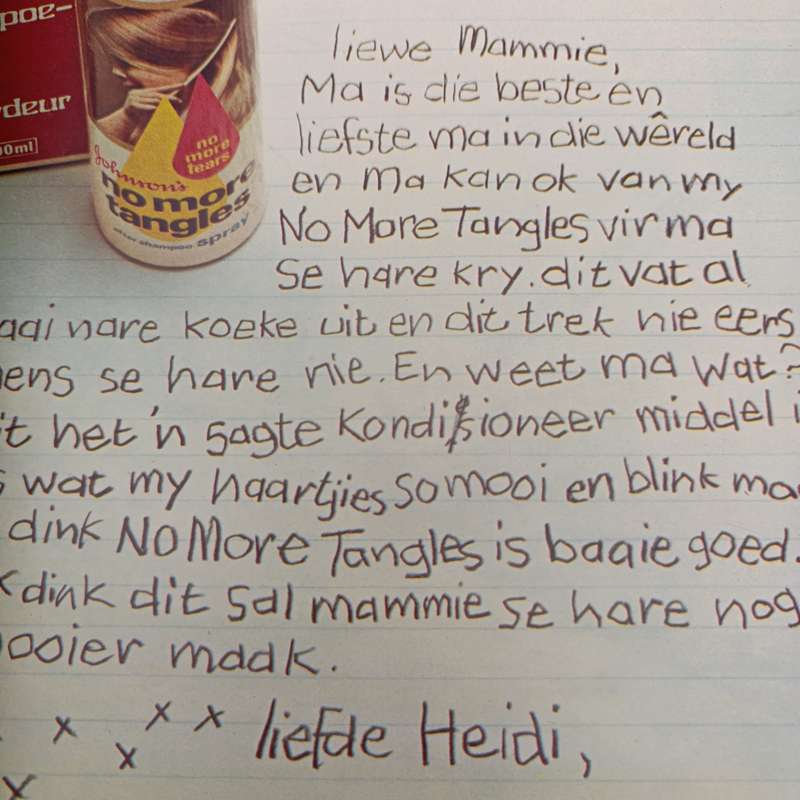 poe-
deur
00ml]
no
more
tears
Johnson's
no more
tangles
after shampoo spray
liewe Mammie,
Ma is die beste en
liefste ma in die wêreld
en Ma kan ok van my
No More Tangles vir ma
se hare kry. dit vat al
aai nare koeke uit en dit trek nie eers
ens se hare nie. En weet ma wat?
it het 'n sagte kondisioneer middel i
s wat my haartjies so mooi en blink ma
dink No More Tangles is baaie goed.
k dink dit sal mammie se hare nog
ooier maak.
x x x x liefde Heidi,
x